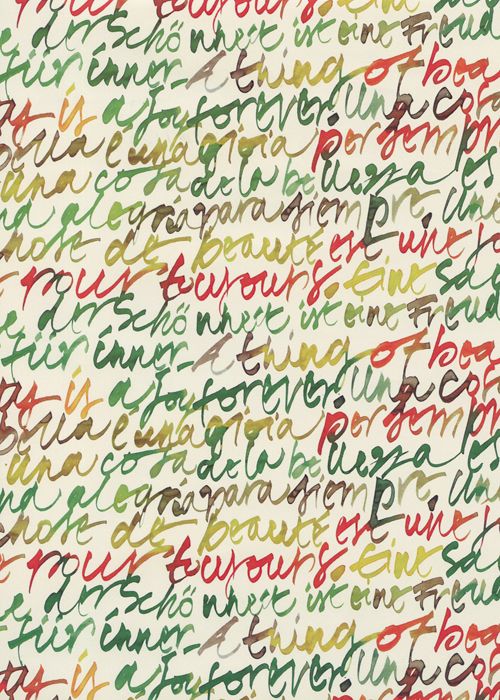 der Schönheit ist eine Freud
für immer_ A thing of bea
ty is a joy forever. Una cos
bella è una gioia per sempr
una cosa de la belleza es
na alegría para siempre. Une
hose de beauté est une j
pour toujours. Eine Sac
e der Schönheit ist eine Freud
für immer_ A thing of bea
ty is a joy forever. Una cos
bella è una gioia per sempr
una cosa de la belleza es
na alegría para siempre. Une
hose de beauté est une j
pour toujours. Eine Sac
e der Schönheit ist eine Freud
für immer_ A thing of bea
ty is a joy forever. Una cos